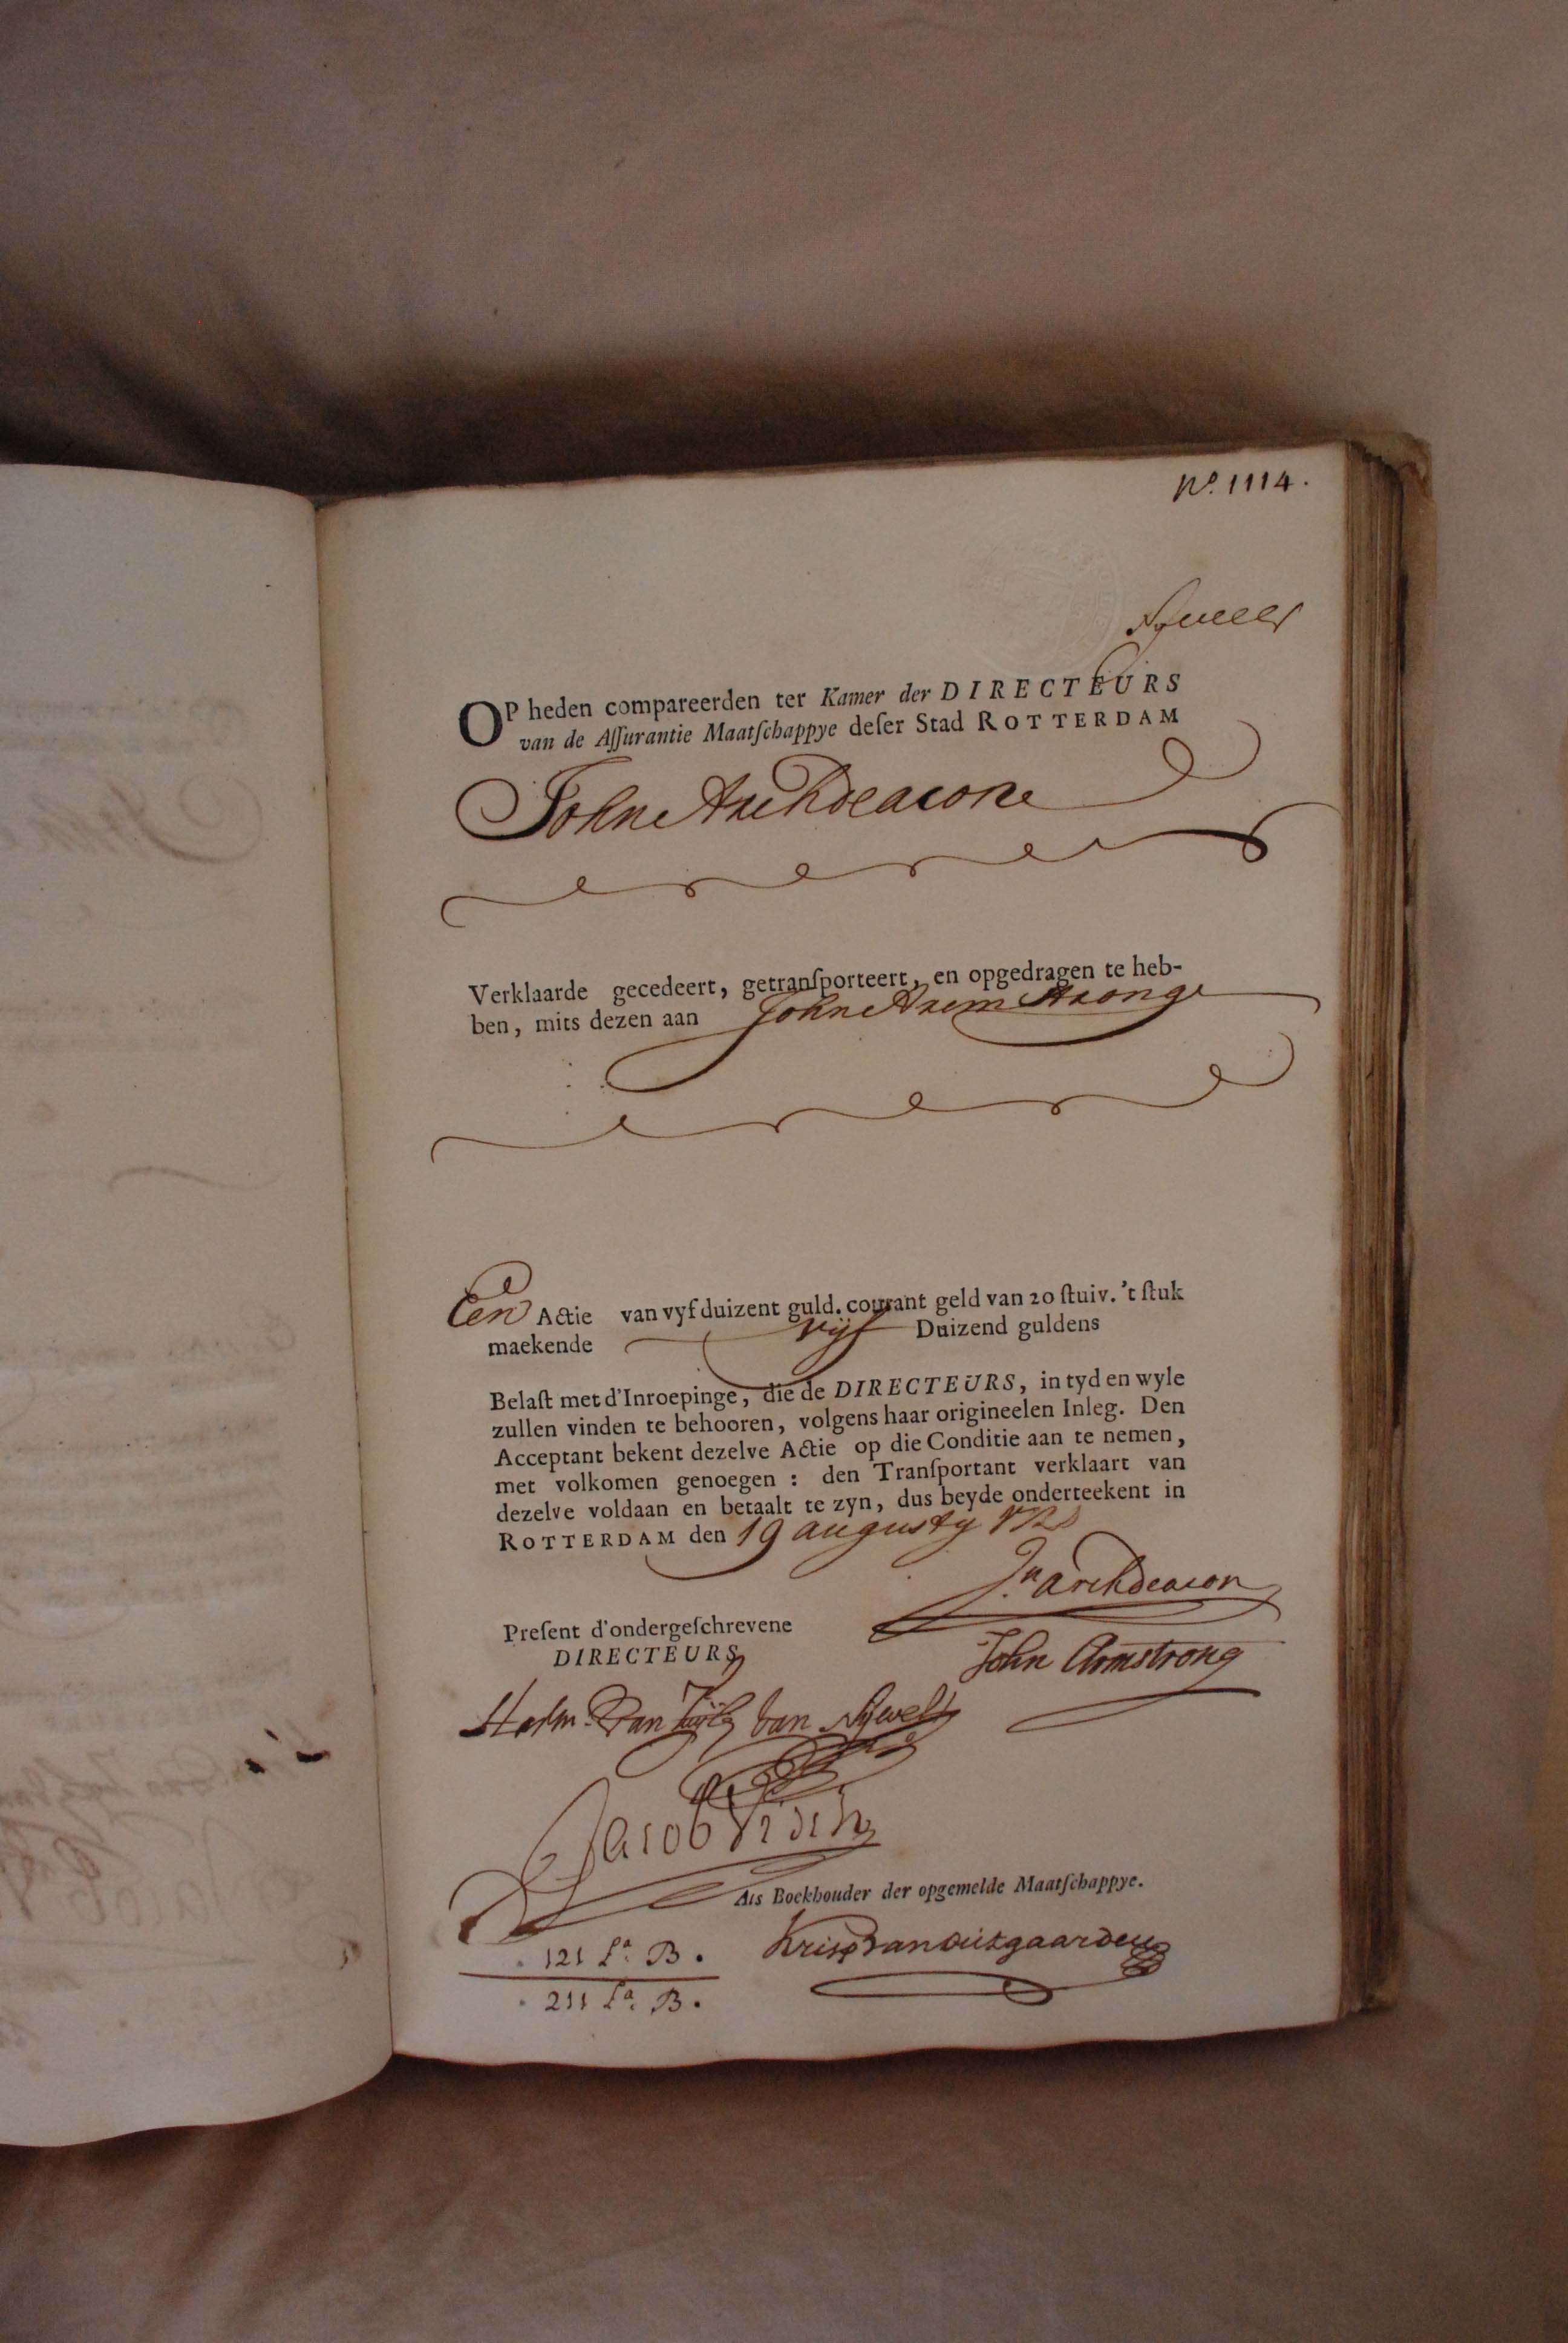 No. 1114.
OP heden compareerden ter Kamer der DIRECTEURS
van de Aſſurantie Maatſchappye deſer Stad ROTTERDAM
John Archdeacon
Verklaarde gecedeert, getranſporteert, en opgedragen te heb-
ben, mits dezen aan John Arem Strong
Een Actie van vyf duizent guld. courant geld van 20 ſtuiv. 't ſtuk
maekende vyf Duizend guldens
Belaſt met d'Inroepinge, die de DIRECTEURS, in tyd en wyle
zullen vinden te behooren, volgens haar origineelen Inleg. Den
Acceptant bekent dezelve Actie op die Conditie aan te nemen,
met volkomen genoegen : den Tranſportant verklaart van
dezelve voldaan en betaalt te zyn, dus beyde onderteekent in
ROTTERDAM den 19 augusty
Jn. Archdeacon
Preſent d'ondergeſchrevene
DIRECTEURS
John Armstrong
Harm. Van Zuyle van Nyvelt
Jacob Visch
Als Boekhouder der opgemelde Maatſchappye.
121 La. B.
211 La. B.